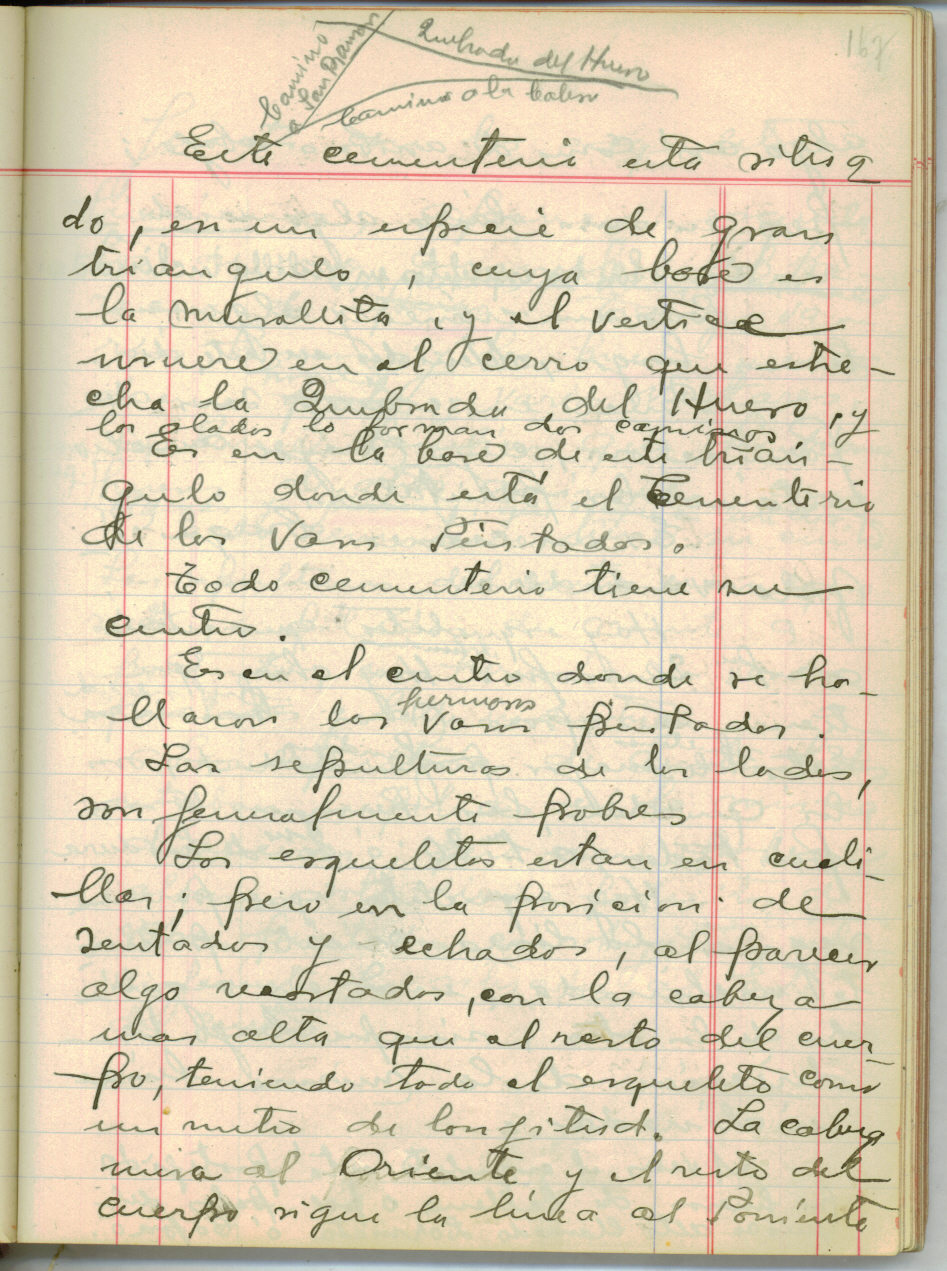 167
Quebrada del Hueso
Camino
a San Ramon
Camino a la Caleta
Este cementerio está situa
do, en un especie de gran
triangulo, cuya base es
la murallita, y el vertice
muere en el cerro que estre-
cha la Quebrada del Hueso, y
los alados lo forman dos caminos
Es en la base de este trian-
gulo donde está el Cementerio
de los Vasos Pintados.
Todo cementerio tiene su
centro.
Es en el centro donde se ha-
hermosos
llaron los Vasos pintados.
Las sepulturas de los lados,
son generalmente pobres
Los esqueletos estan en cucli-
llas; pero en la posicion de
sentados y echados, al parecer
algo recostados, con la cabeza
mas alta que el resto del cuer-
po, teniendo todo el esqueleto como
un metro de longitud. La cabeza
mira al Oriente y el resto del
cuerpo sigue la línea al Poniente